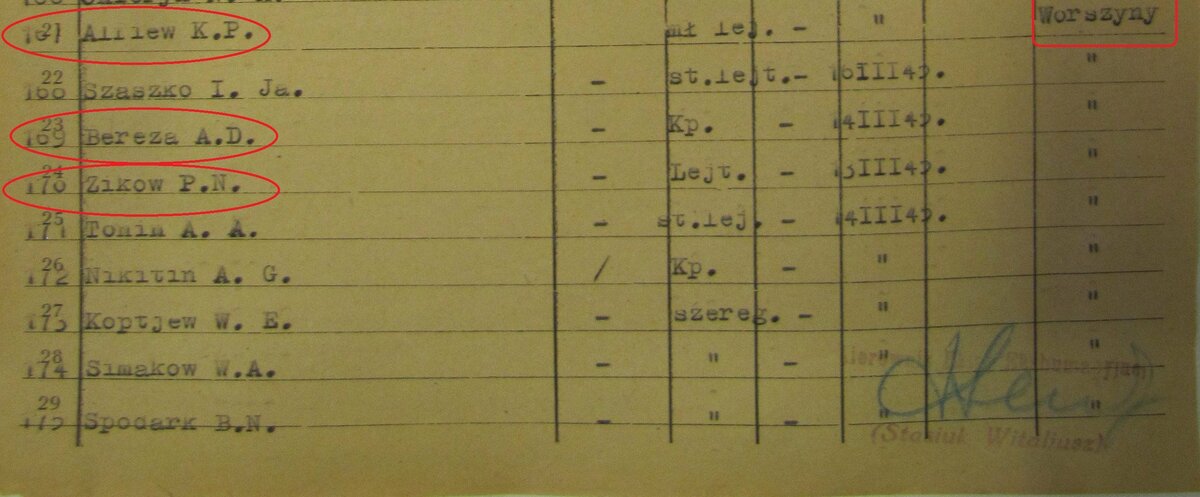 Worszyny
21 167 Alliew K.P. mł lej. - "
22 168 Szaszko I. Ja. - st.lejt.- 16III45. "
23 169 Bereza A.D. - Kp. - 14III45. "
24 170 Zikow P.N. - Lejt. - 13III45. "
25 171 Tomin A. A. - st.lej. - 14III45. "
26 172 Nikitin A. G. / Kp. - " "
27 173 Koptjew W. E. - szereg. - " "
28 174 Simakow W.A. - " - " "
29 175 Spodark B.N. - " - " "
(Stasiuk Witaliusz)